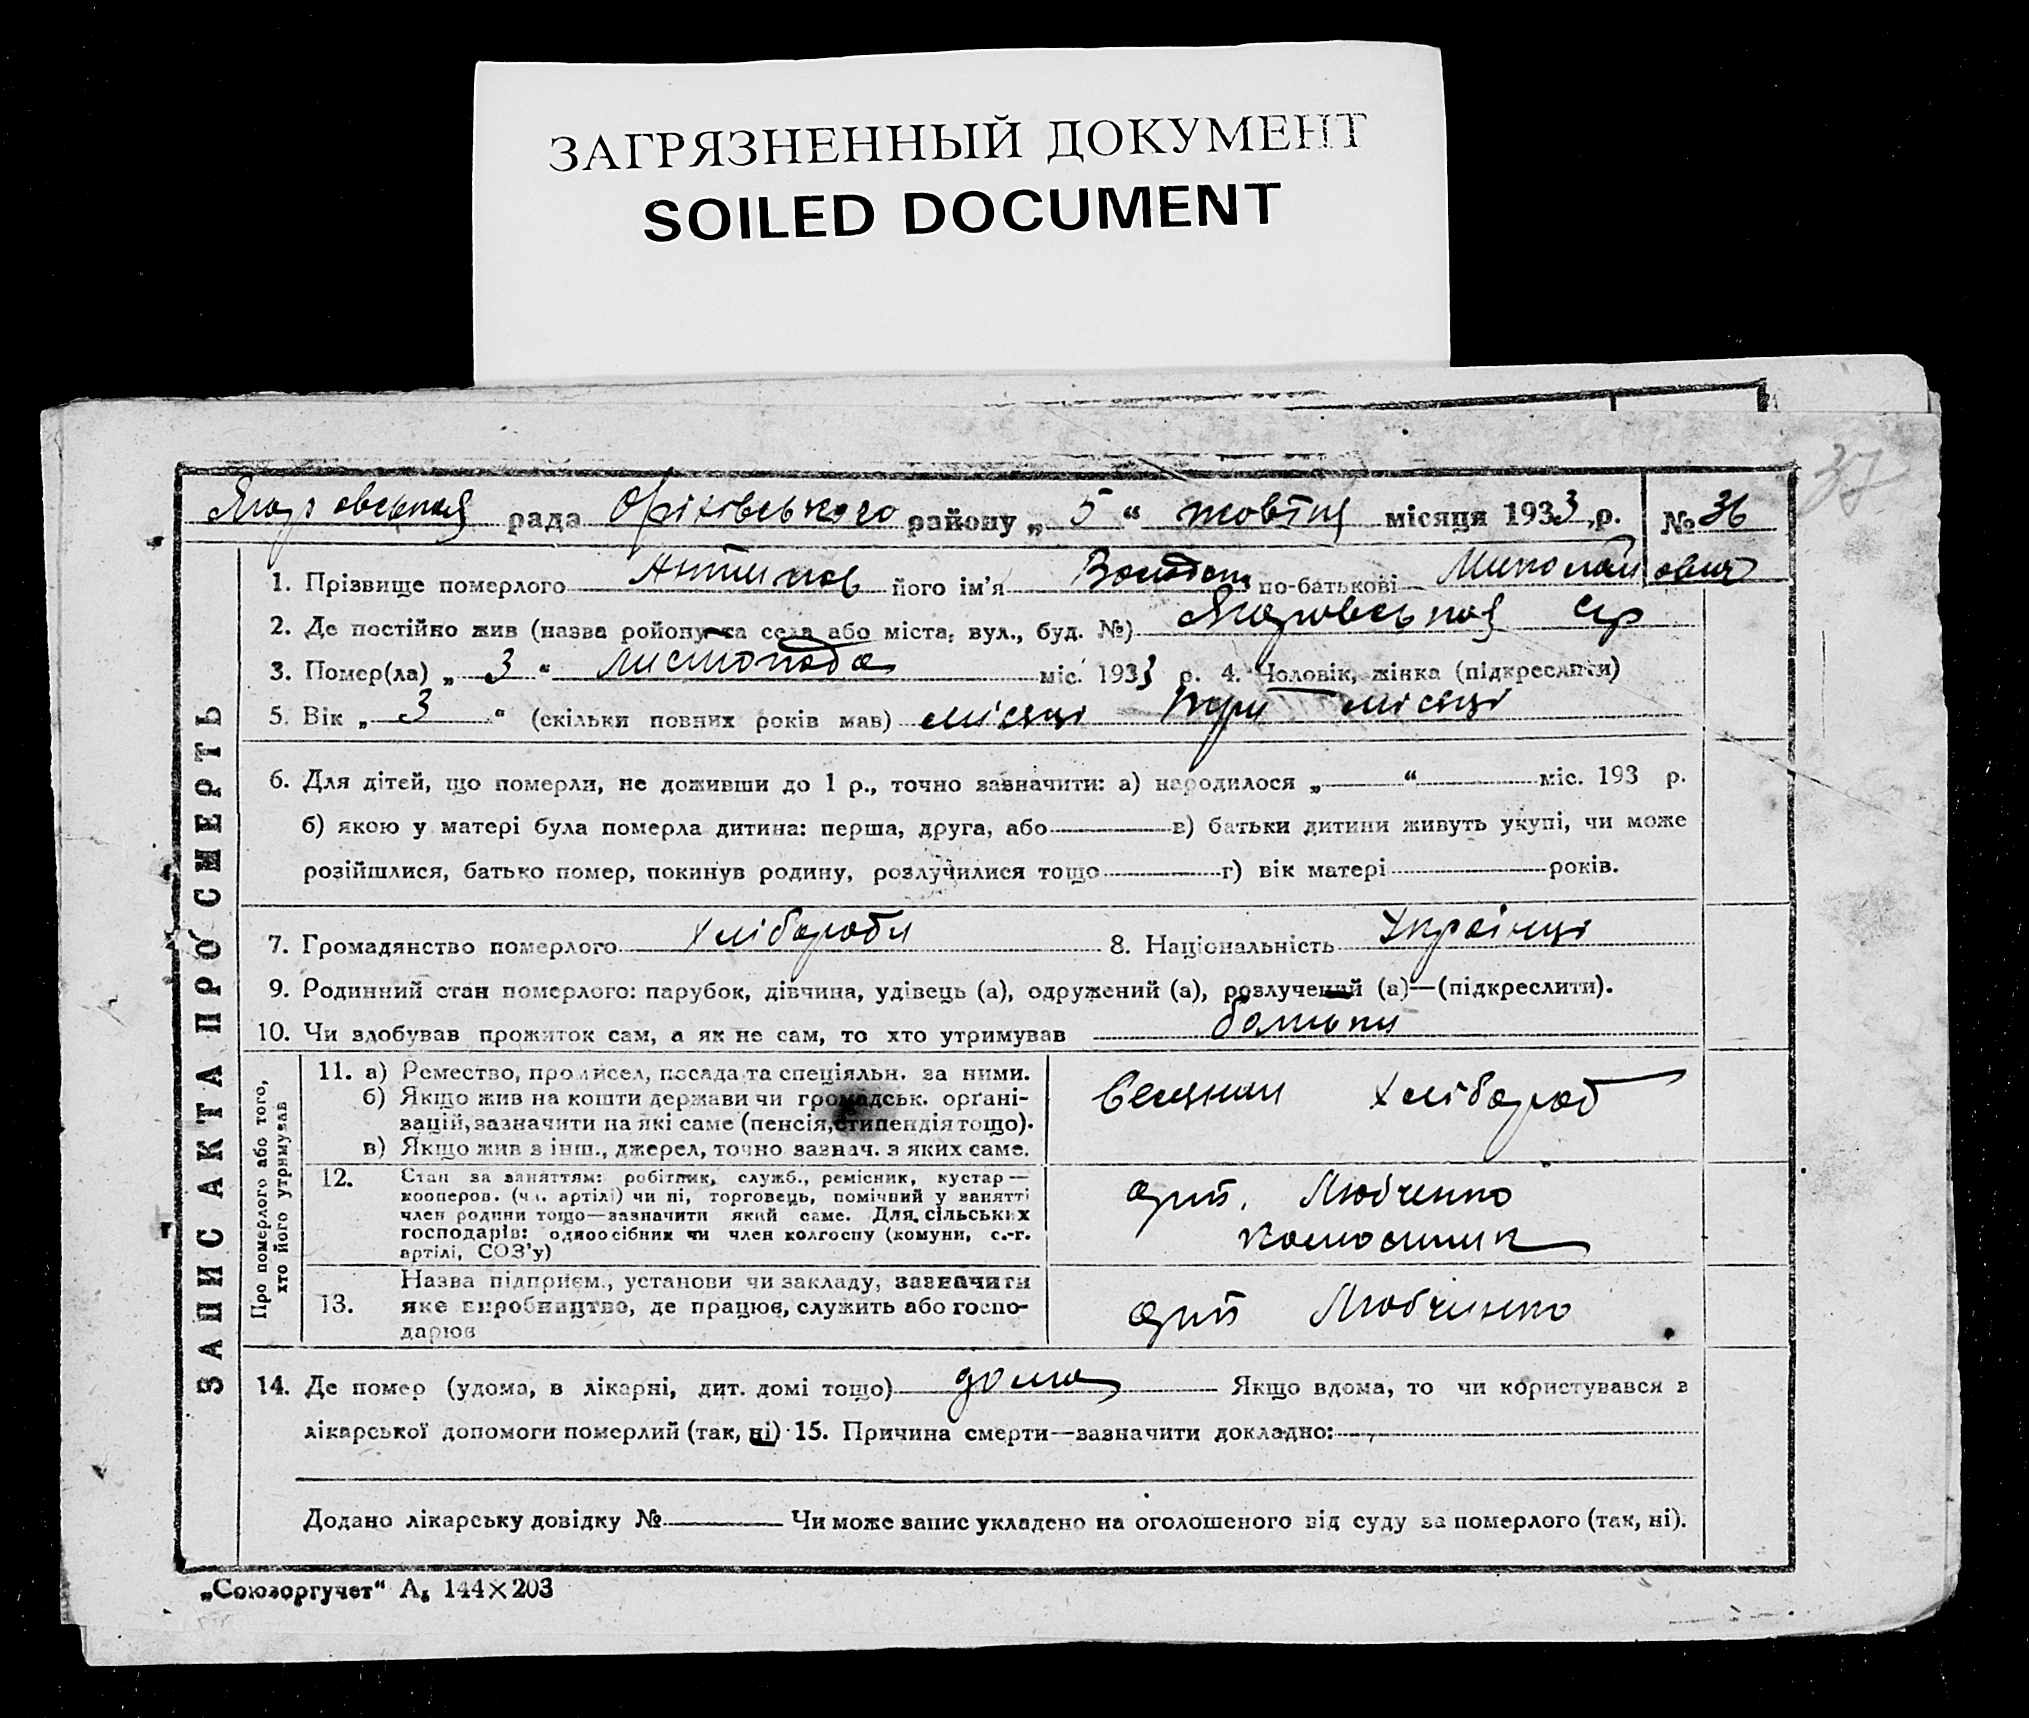 ЗАГРЯЗНЕННЫЙ ДОКУМЕНТ
SOILED DOCUMENT
37
рада Оріхівського району „ 5 “ жовтня місяця 1933 р. № 36
1. Прізвище померлого Антипов його ім'я Володим. по-батькові Миколайович
2. Де постійно жив (назва ройону та села або міста, вул., буд. №) с/р
3. Помер(ла) „ 3 “ листопада міс. 1933 р. 4. Чоловік, жінка (підкреслити)
5. Вік „ 3 “ (скільки повних років мав) місяці три місяці
6. Для дітей, що померли, не доживши до 1 р., точно зазначити: а) народилося „ “ міс. 193 р.
б) якою у матері була померла дитина: перша, друга, або в) батьки дитини живуть укупі, чи може
розійшлися, батько помер, покинув родину, розлучилися тощо г) вік матері років.
7. Громадянство померлого хлібороби 8. Національність Українці
9. Родинний стан померлого: парубок, дівчина, удівець (а), одружений (а), розлучений (а)—(підкреслити).
10. Чи здобував прожиток сам, а як не сам, то хто утримував батьки
ЗАПИС АКТА ПРО СМЕРТЬ
Про померлого або того, хто його утримував
11. а) Ремество, промисел, посада та спеціяльн. за ними.
б) Якщо жив на кошти держави чи громадськ. орґані-
зацій, зазначити на які саме (пенсія, стипендія тощо).
в) Якщо жив з інш., джерел, точно зазнач. з яких саме.
хлібороб
12. Стан за заняттям: робітник, служб., ремісник, кустар—
кооперов. (чл. артілі) чи ні, торговець, помічний у занятті
член родини тощо—зазначити який саме. Для сільських
господарів: одноосібник чи член колгоспу (комуни, с.-г.
артілі, СОЗ'у)
арт. Любченко
колгоспник
13. Назва підприєм., установи чи закладу, зазначити
яке виробництво, де працює, служить або госпо-
дарює
арт Любченко
14. Де помер (удома, в лікарні, дит. домі тощо) дома Якщо вдома, то чи користувався з
лікарської допомоги померлий (так, ні) 15. Причина смерти—зазначити докладно:
Додано лікарську довідку № Чи може запис укладено на оголошеного від суду за померлого (так, ні).
„Союзоргучет“ А5 144×203